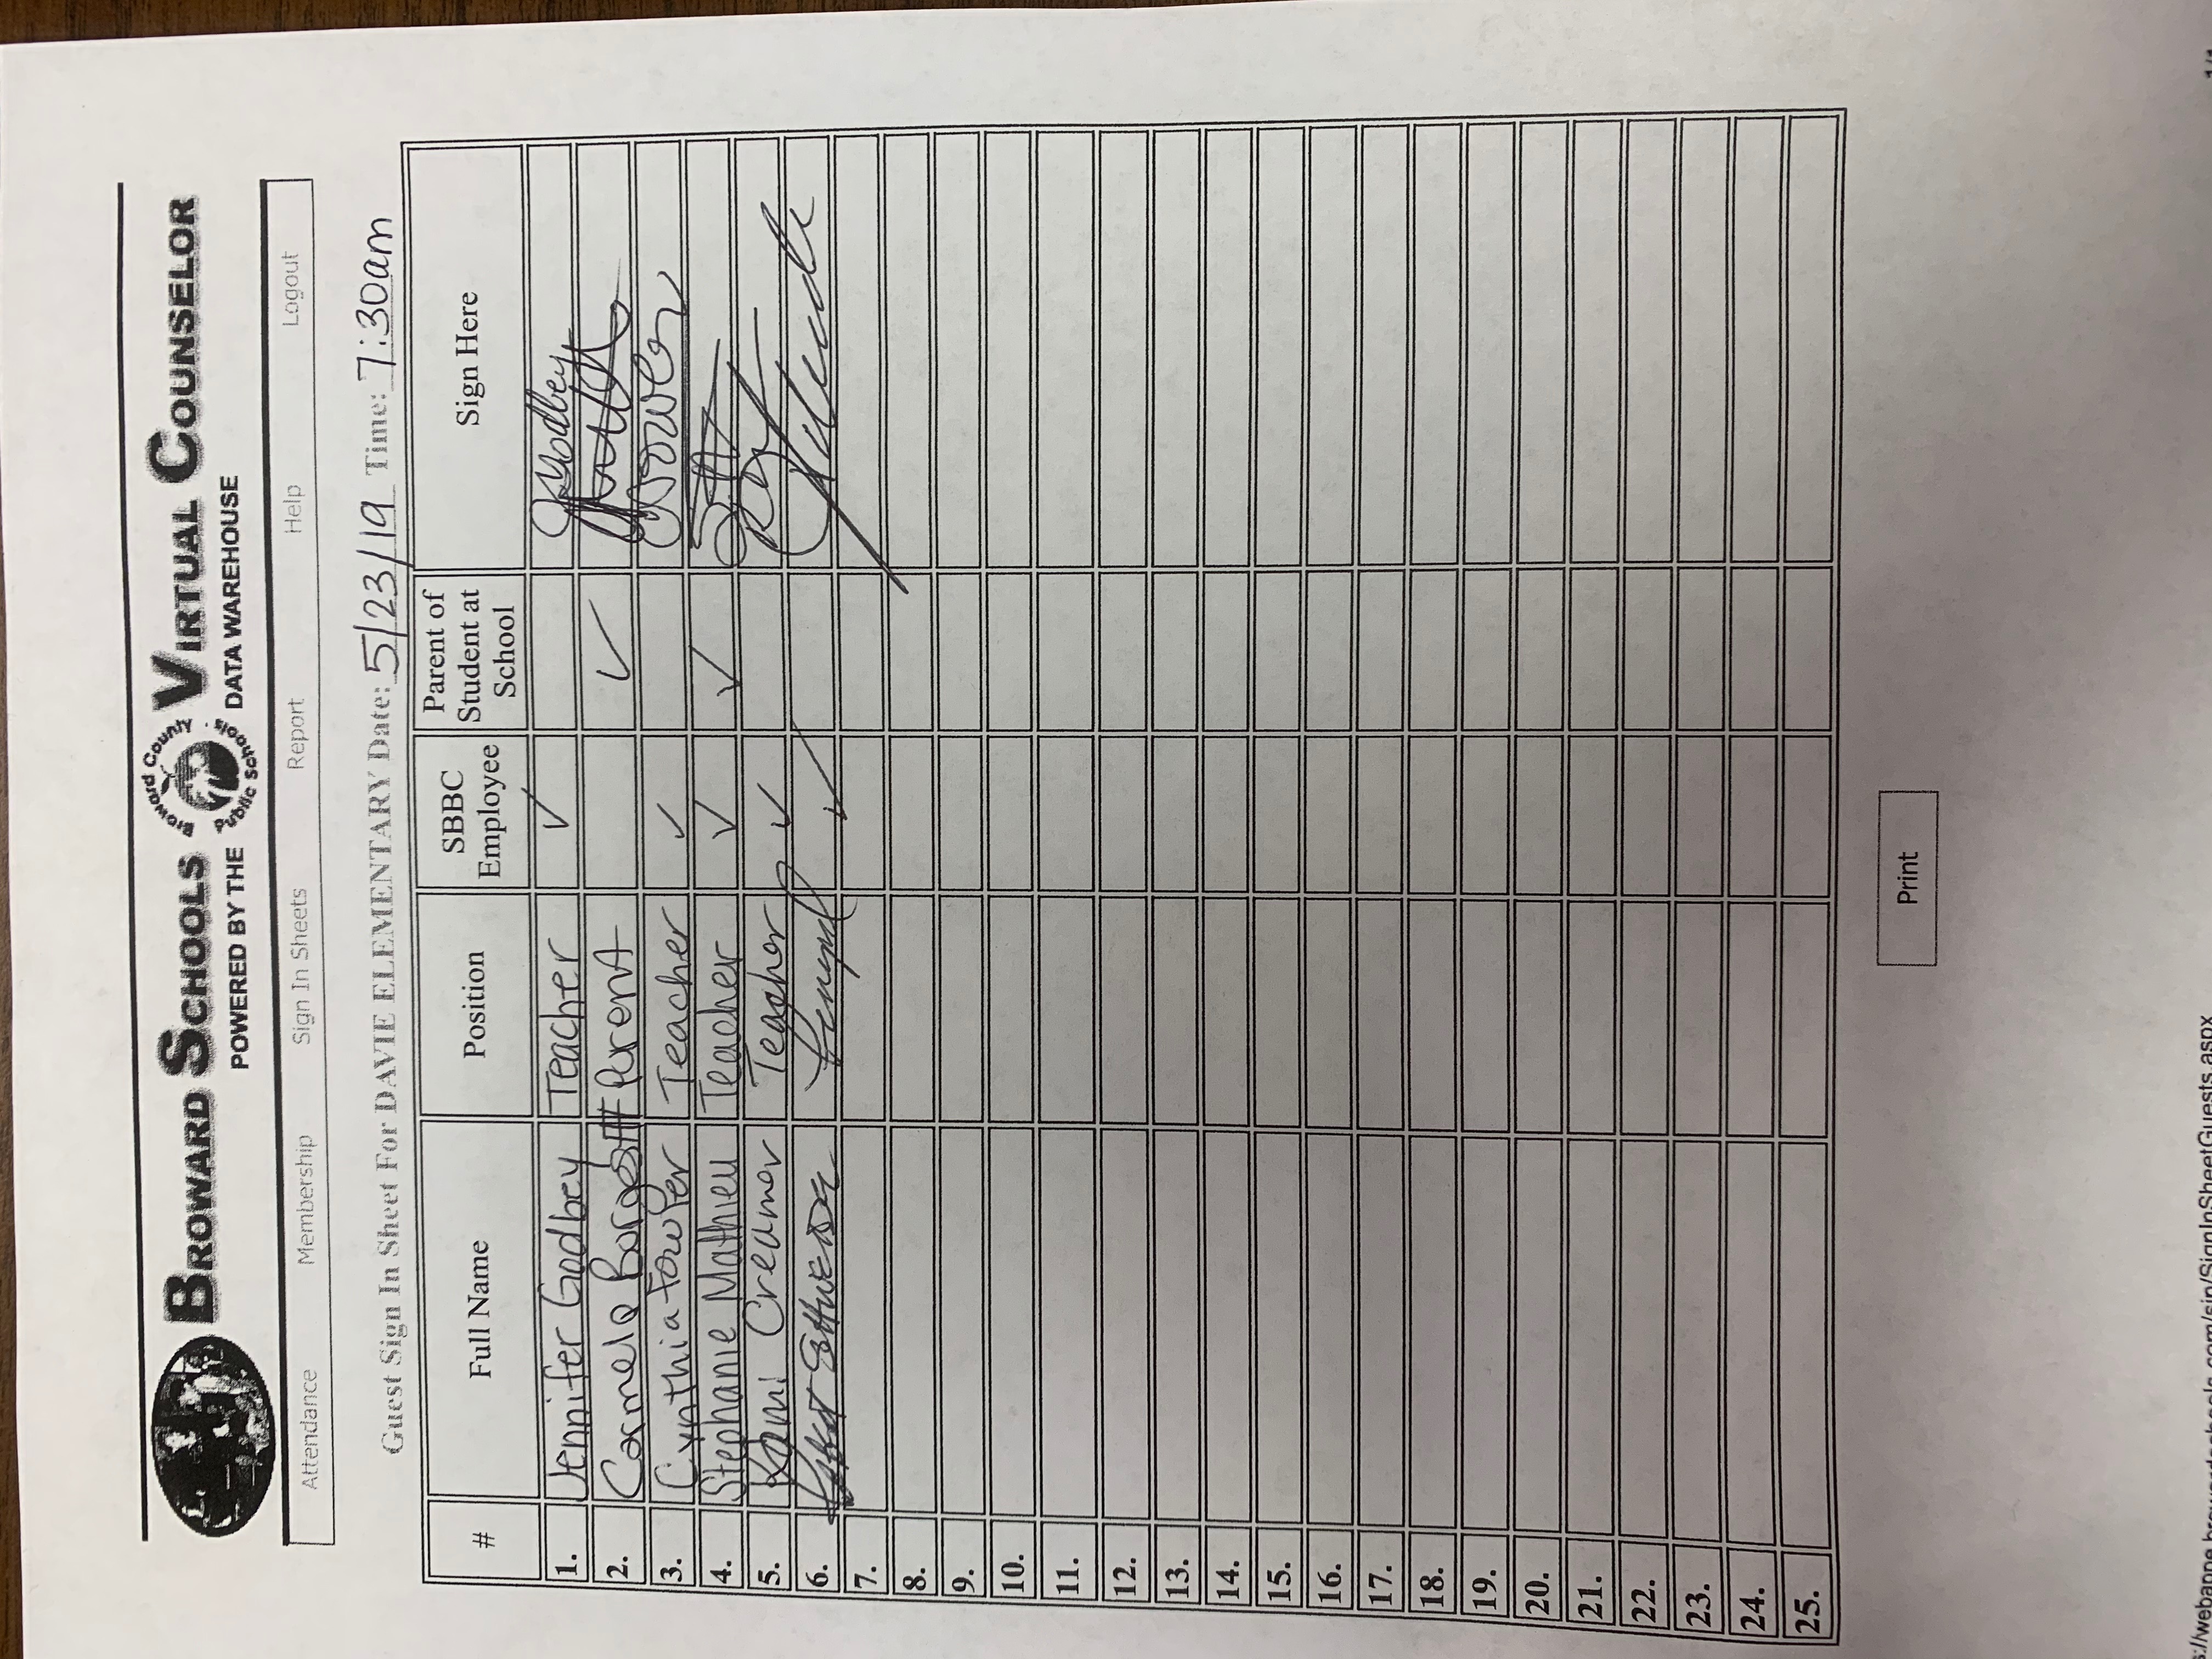 BROWARD SCHOOLS VIRTUAL COUNSELOR
POWERED BY THE DATA WAREHOUSE
Broward County Public Schools
Attendance Membership Sign In Sheets Report Help Logout
Guest Sign In Sheet For DAVIE ELEMENTARY Date: 5/23/19 Time: 7:30am
# Full Name Position SBBC Employee Parent of Student at School Sign Here
1. Jennifer Godbey Teacher ✓ JGodbey
2. Carmela Parent ✓
3. Cynthia Fowler Teacher ✓
4. Stephanie Mathieu Teacher ✓ ✓
5. Kami Creamer Teacher ✓
6. ✓
7.
8.
9.
10.
11.
12.
13.
14.
15.
16.
17.
18.
19.
20.
21.
22.
23.
24.
25.
Print
1/1